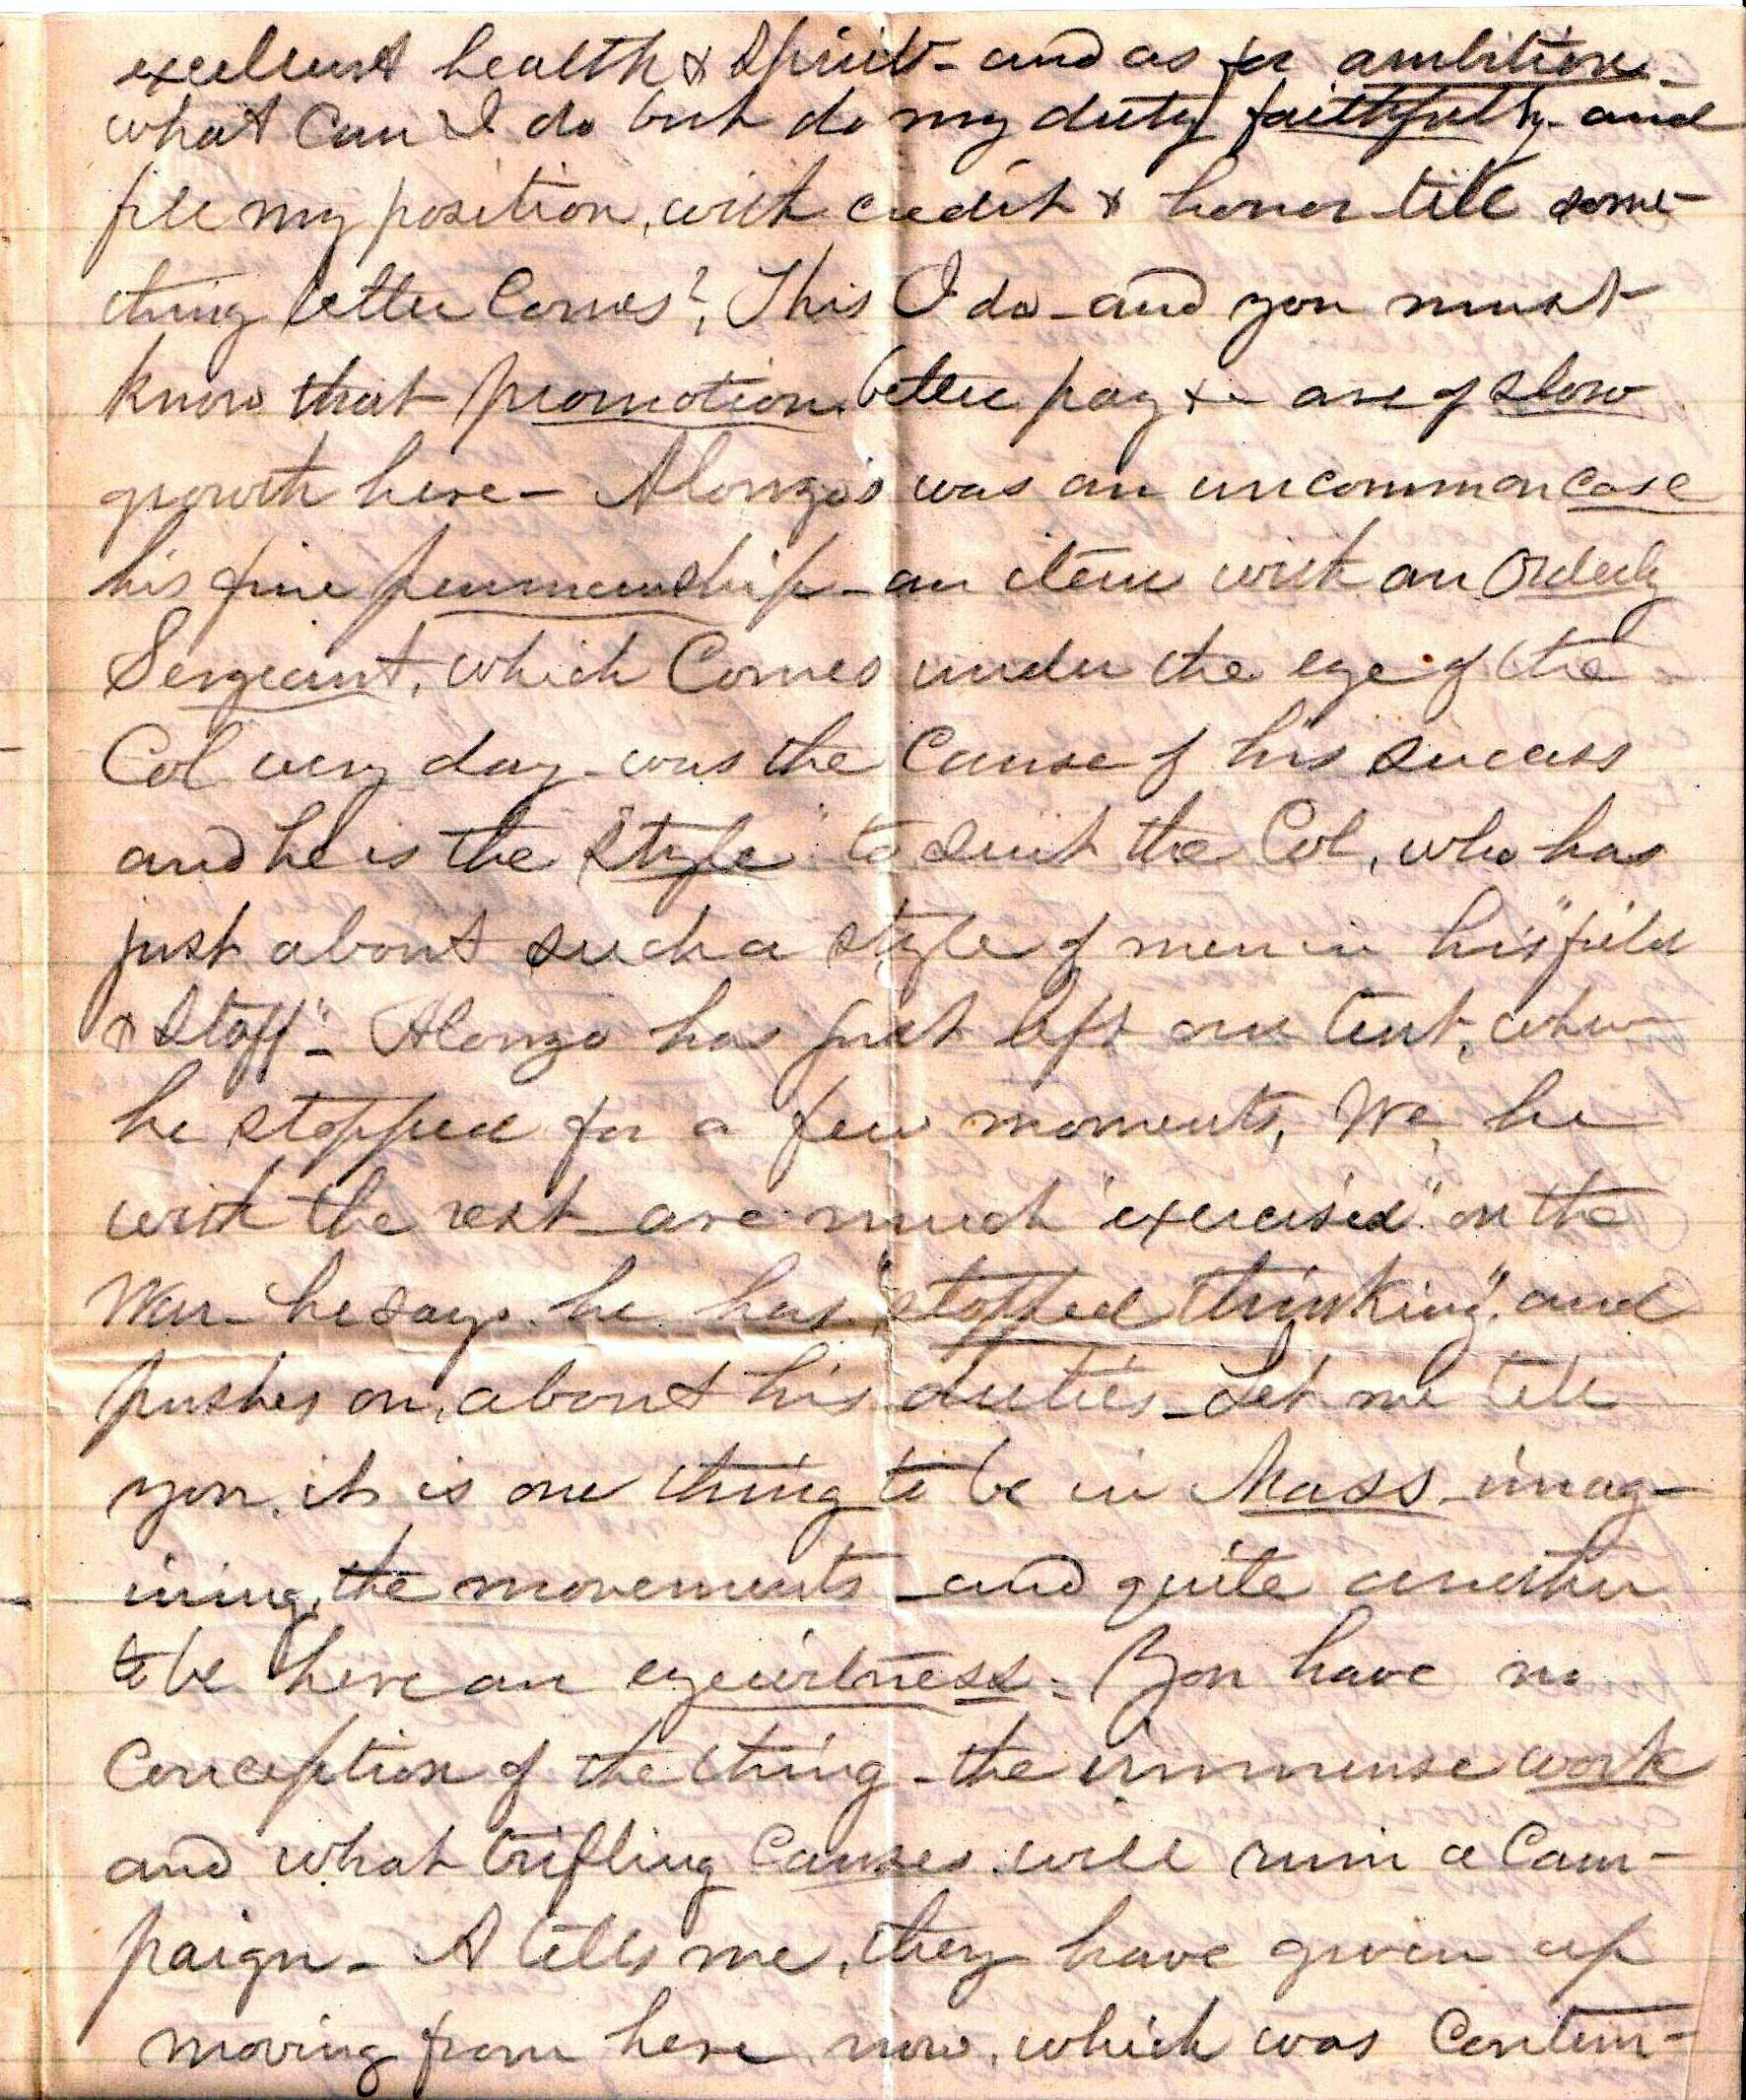 excellent health & spirits - and as for ambition -
what can I do but do my duty faithfully - and
fill my position, with credit & honor till some-
thing better comes? This I do - and you must
know that promotion better pay &c are of slow
growth here - Alonzo's was an uncommon case
his fine penmanship - an item with an Orderly
Sergeant, which comes under the eye of the
Col every day - was the cause of his success
and he is the "style" to suit the Col, who has
just about such a style of men in his "field
& Staff" - Alonzo has just left our tent, where
he stopped for a few moments, We, he
with the rest - are much "exercised" on the
War - he says he has "stopped thinking", and
pushes on, about his duties - Let me tell
you, it is one thing to be in Mass - imag-
ining, the movements - and quite another
to be here an eyewitness - You have no
conception of the thing - the immense work
and what trifling causes will ruin a Cam-
paign - A tells me, they have given up
moving from here now, which was contem-